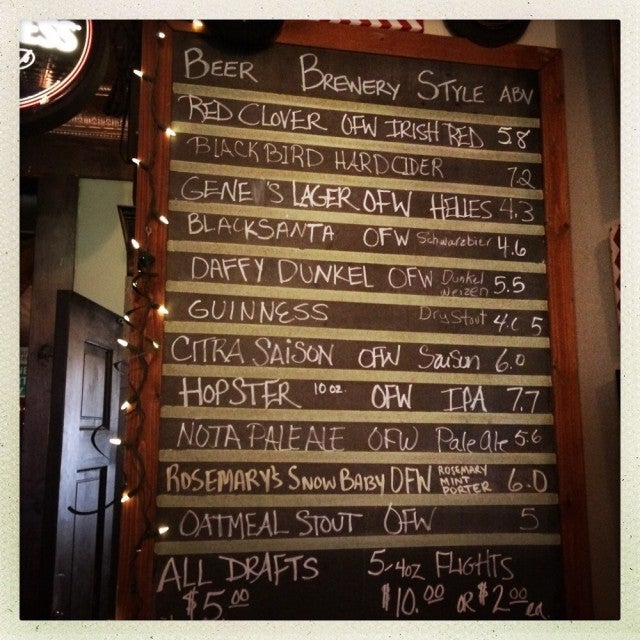 ESS
BEER BREWERY STYLE ABV
RED CLOVER OFW IRISH RED 5.8
BLACKBIRD HARD CIDER 7.2
GENE'S LAGER OFW HELLES 4.3
BLACKSANTA OFW Schwarzbier 4.6
DAFFY DUNKEL OFW Dunkel Weizen 5.5
GUINNESS Dry Stout
CITRA SAISON OFW Saison 6.0
HOPSTER 10 oz. OFW IPA 7.7
NOTA PALE ALE OFW Pale Ale 5.6
ROSEMARY'S SNOW BABY OFW ROSEMARY MINT PORTER 6.0
OATMEAL STOUT OFW 5
ALL DRAFTS 5-4oz FLIGHTS
$5.00 $10.00 OR $2.00 ea.